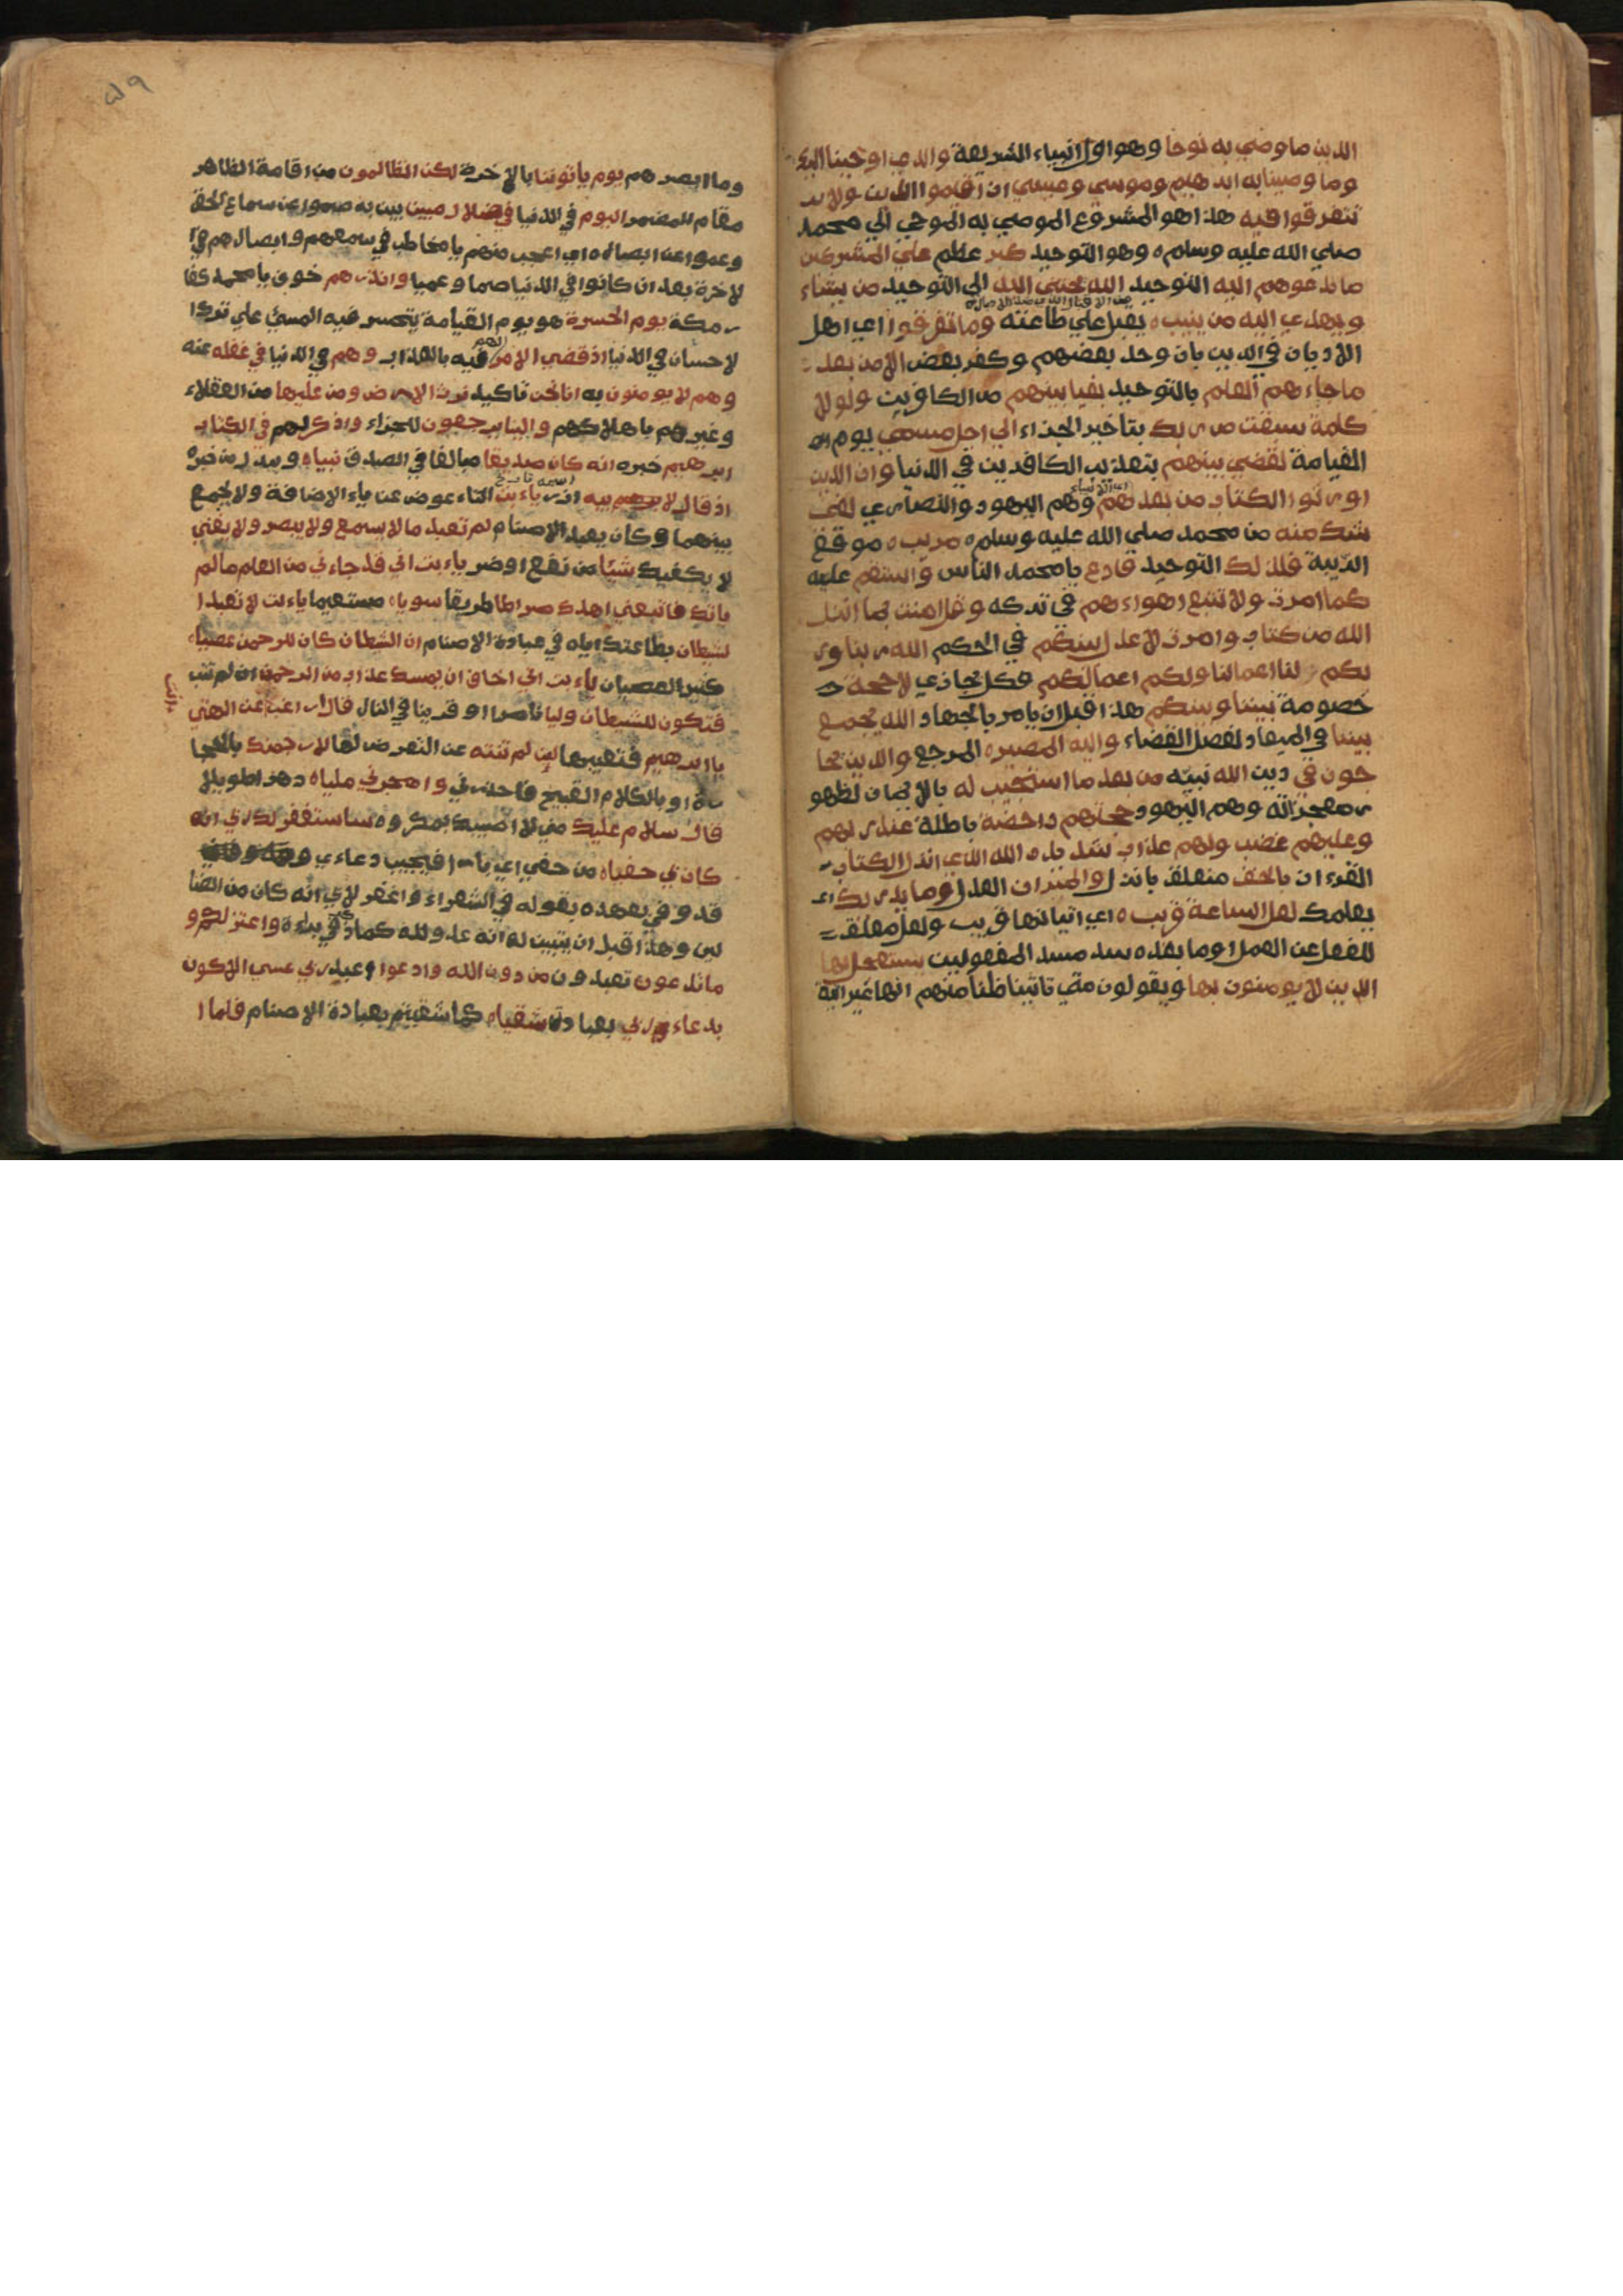 الدين ما وصي به نوحا وهو اول انبياء الشريعة والذي اوحينا اليك
وما وصينا به ابرهيم وموسي وعيسي ان اقيموا الدين ولا
تتفرقوا فيه هذا هو المشروع الموصي به الموحي الي محمد
صلي الله عليه وسلم ه وهو التوحيد كبر عظم علي المشركين
ما تدعوهم اليه التوحيد الله يجتبي اليه الي التوحيد من يشاء
ويهدي اليه من ينيب ه يقبل علي طاعته وما تفرقوا اي اهل
الاديان في الدين بان وحد بعضهم وكفر بعض الا من بعد
ما جاءهم العلم بالتوحيد بغيا بينهم من الكافرين ولولا
كلمة سبقت من ربك بتاخير الجزاء الي اجل مسمي يوم
القيامة لقضي بينهم بتعذيب الكافرين في الدنيا وان الذين
اورثوا الكتاب من بعدهم وهم اليهود والنصاري لفي
شك منه من محمد صلي الله عليه وسلم ه مريب ه موقع
الريبة فلذلك التوحيد فادع يا محمد الناس واستقم عليه
كما امرت ولا تتبع اهواءهم في تركه وقل امنت بما انزل
الله من كتاب وامرت لاعدل بينكم في الحكم الله ربنا ور
بكم لنا اعمالنا ولكم اعمالكم فكل يجازي لا حجة
خصومة بيننا وبينكم هذا قبل ان يامر بالجهاد الله يجمع
بيننا في الميعاد لفصل القضاء واليه المصير ه المرجع والذين يحا
جون في دين الله نبيه من بعد ما استجيب له بالايمان لظهو
ر معجزاته وهم اليهود حجتهم داحضة باطلة عند ربهم
وعليهم غضب ولهم عذاب شديد ه الله الذي انزل الكتاب
القرءان بالحق متعلق بانزل والميزان العدل وما يدريك اي
يعلمك لعل الساعة قريب ه اي اتيانها قريب ولعل معلق
للفعل عن العمل او ما بعده سد مسد المفعولين يستعجل بها
الذين لا يومنون بها ويقولون متي تاتينا ظنا منهم انها غير اتية
٥٩
وما ابصرهم يوم ياتوننا بالاخرة لكن الظالمون من اقامة الظاهر
مقام المضمر اليوم في الدنيا في ضلال مبين بين به صموا عن سماع الحق
وعموا عن ابصاره اي اعجب منهم يا مخاطب في سمعهم وابصارهم في ا
لاخرة بعد ان كانوا في الدنيا صما وعميا وانذرهم خوف يا محمد كفا
ر مكة يوم الحسرة هو يوم القيامة يتحسر فيه المسئ علي ترك ا
لاحسان في الدنيا اذ قضي الامر لهم فيه بالعذاب وهم في الدنيا في غفله عنه
وهم لا يومنون به انا نحن تاكيد نرث الارض ومن عليها من العقلاء
وغيرهم باهلاكهم والينا يرجعون للجزاء واذكر لهم في الكتاب
ابرهيم خبره انه كان صديقا مبالغا في الصدق نبياه ويبدل من خبره
اذ قال لابيه ازر ياءبت التاء عوض عن ياء الاضافة ولا يجمع
بينهما وكان يعبد الاصنام لم تعبد ما لا يسمع ولا يبصر ولا يغني
لا يكفيك شيئا من نفع او ضر ياءبت اني قد جاءني من العلم ما لم
ياتك فاتبعني اهدك صراطا طريقا سوياه مستقيما ياءبت لا تعبد ا
لشيطان بطاعتك اياه في عبادة الاصنام ان الشيطان كان للرحمن عصياه
كثير العصيان ياءبت اني اخاف ان يمسك عذاب من الرحمن ان لم تتب
فتكون للشيطان وليا ناصرا او قرينا في النار قال اراغب انت عن الهتي
يا ابرهيم فتعيبها لين لم تنته عن التعرض لها لارجمنك بالحجا
رة او بالكلام القبيح فاحذرني واهجرني ملياه دهرا طويلا
قال سلام عليك مني لا اصيبك بمكروه ساستغفر لك ربي انه
كان بي حفياه من حفي اي بارا فيجيب دعاءي
قد وفي بعهده بقوله في الشعراء واغفر لابي انه كان من الضا
لين وهذا قبل ان يتبين له انه عدو لله كما ذكر في براءة واعتزلكم و
ما تدعون تعبدون من دون الله وادعوا اعبد ربي عسي الا كون
بدعاء ربي بعبادته شقياه كما شقيتم بعبادة الاصنام فلما ا